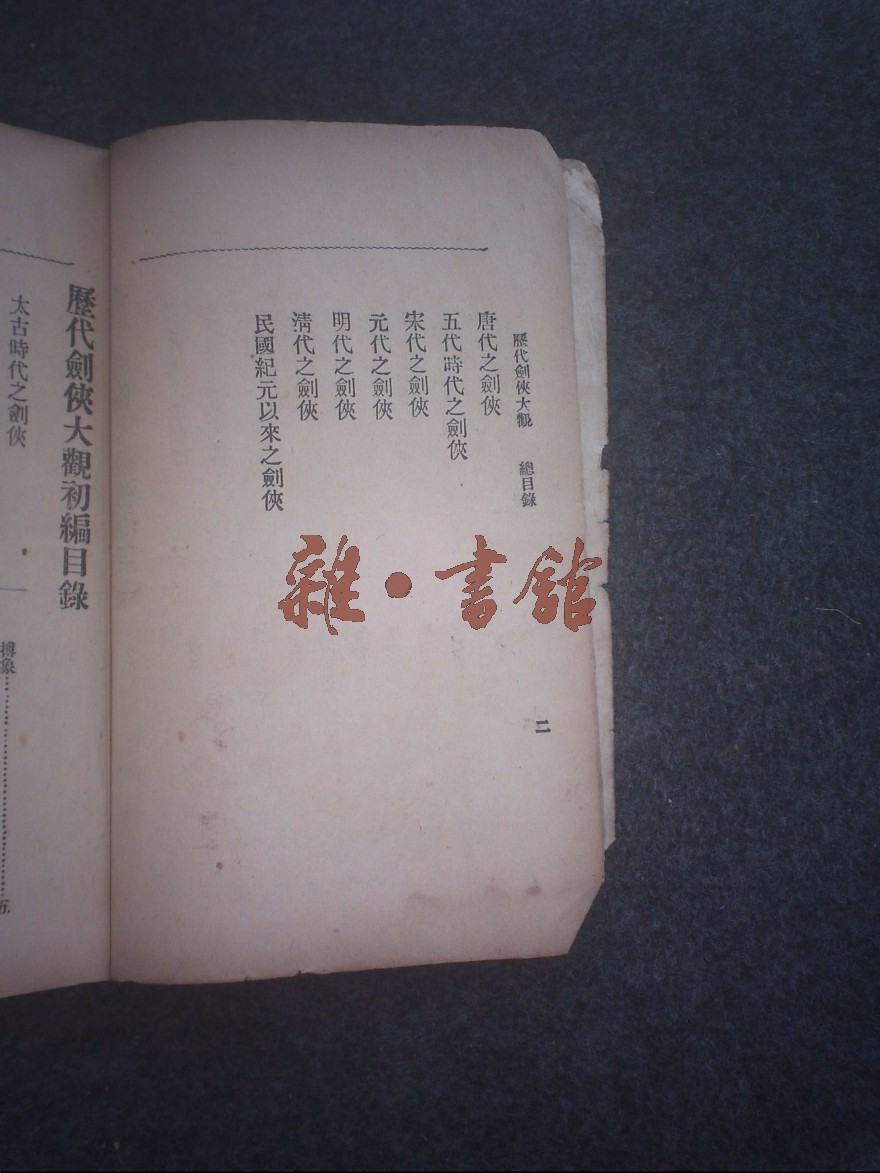 歷代劍俠大觀　總目錄
唐代之劍俠
五代時代之劍俠
宋代之劍俠
元代之劍俠
明代之劍俠
清代之劍俠
民國紀元以來之劍俠
二
歷代劍俠大觀初編目錄
太古時代之劍俠
搏象…………五
雜·書館